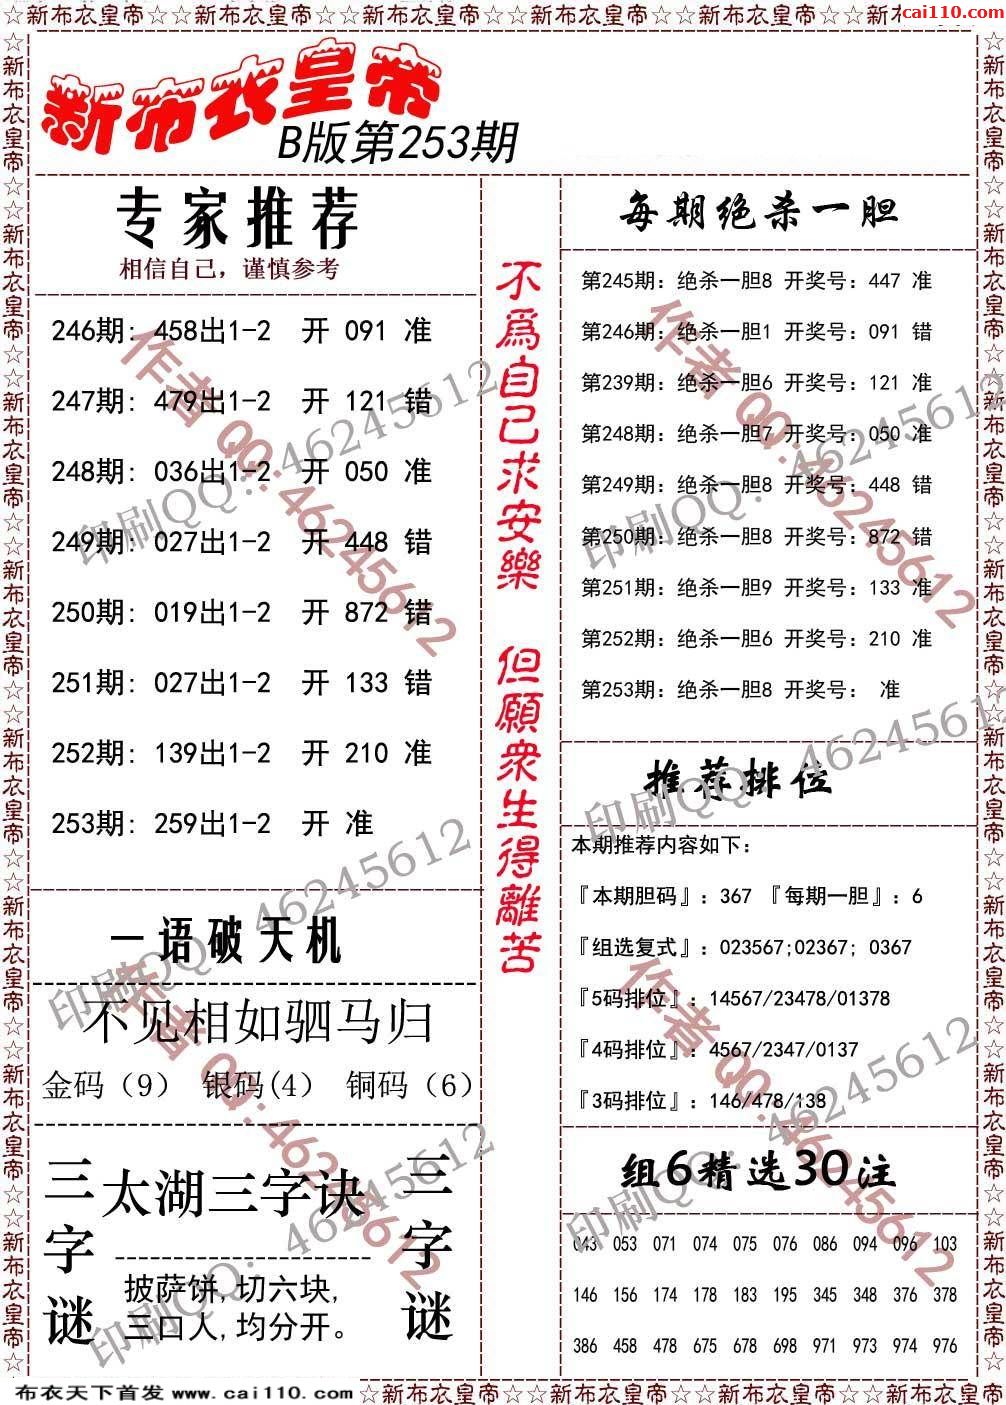 ☆新布衣皇帝☆☆新布衣皇帝☆☆新布衣皇帝☆☆新布衣皇帝☆☆新布衣皇帝☆☆新
cai110.com
新布衣皇帝
B版第253期
专家推荐
相信自己，谨慎参考
246期：458出1-2 开 091 准
247期：479出1-2 开 121 错
248期：036出1-2 开 050 准
249期：027出1-2 开 448 错
250期：019出1-2 开 872 错
251期：027出1-2 开 133 错
252期：139出1-2 开 210 准
253期：259出1-2 开 准
一语破天机
不见相如驷马归
金码（9） 银码(4） 铜码（6）
三字谜
太湖三字诀
披萨饼,切六块,
三口人,均分开。
三字谜
不爲自己求安樂 但願衆生得離苦
每期绝杀一胆
第245期：绝杀一胆8 开奖号：447 准
第246期：绝杀一胆1 开奖号：091 错
第239期：绝杀一胆6 开奖号：121 准
第248期：绝杀一胆7 开奖号：050 准
第249期：绝杀一胆8 开奖号：448 错
第250期：绝杀一胆8 开奖号：872 错
第251期：绝杀一胆9 开奖号：133 准
第252期：绝杀一胆6 开奖号：210 准
第253期：绝杀一胆8 开奖号： 准
推荐排位
本期推荐内容如下：
『本期胆码』：367 『每期一胆』：6
『组选复式』：023567;02367; 0367
『5码排位』：14567/23478/01378
『4码排位』：4567/2347/0137
『3码排位』：146/478/138
组6精选30注
043 053 071 074 075 076 086 094 096 103
146 156 174 178 183 195 345 348 376 378
386 458 478 675 678 698 971 973 974 976
作者 QQ:46245612
印刷QQ：46245612
作者 QQ:46245612
印刷QQ：46245612
印刷QQ：46245612
印刷QQ：46245612
作者 QQ:46245612
印刷QQ：46245612
作者 QQ:46245612
印刷QQ：46245612
布衣天下首发 www.cai110.com
☆新布衣皇帝☆☆新布衣皇帝☆☆新布衣皇帝☆☆新布衣皇帝☆